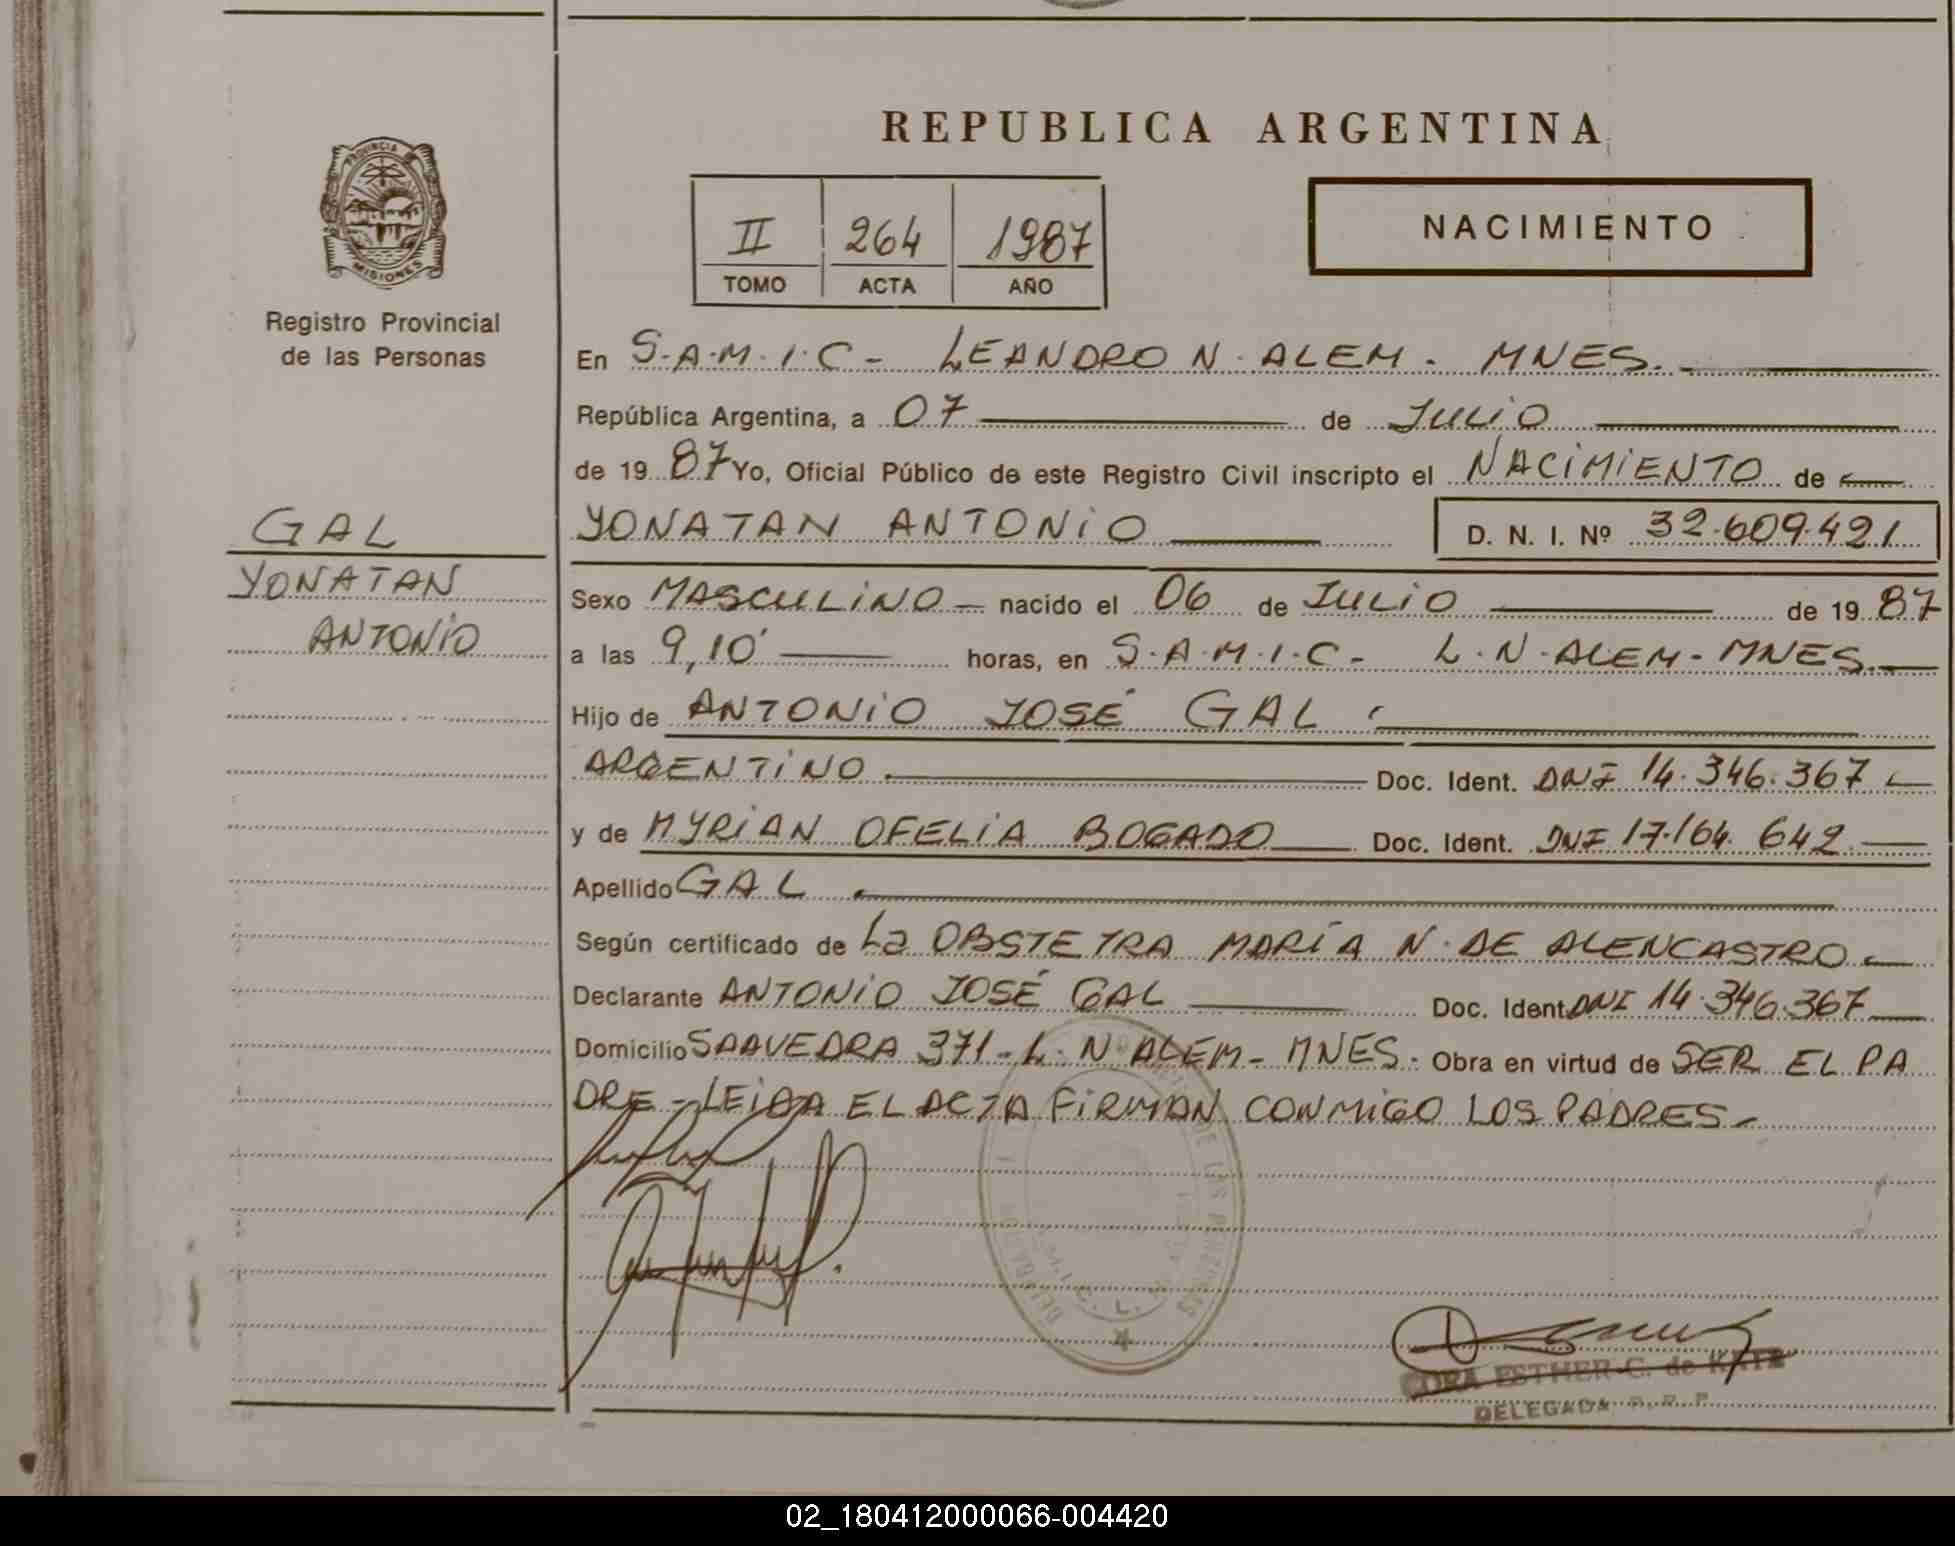 REPUBLICA ARGENTINA
PROVINCIA DE
MISIONES
Registro Provincial
de las Personas
II 264 1987
TOMO ACTA AÑO
NACIMIENTO
En S.A.M.I.C - LEANDRO N. ALEM - MNES.
República Argentina, a 07 de JULIO
de 19 87 Yo, Oficial Público de este Registro Civil inscripto el NACIMIENTO de
GAL
YONATAN
ANTONIO
YONATAN ANTONIO D. N. I. Nº 32.609.421
Sexo MASCULINO nacido el 06 de JULIO de 19 87
a las 9,10' horas, en S.A.M.I.C - L.N. ALEM - MNES.
Hijo de ANTONIO JOSÉ GAL
ARGENTINO Doc. Ident. DNI 14.346.367
y de MYRIAN OFELIA BOGADO Doc. Ident. DNI 17.164.642
Apellido GAL
Según certificado de La OBSTETRA MARÍA N. DE ALENCASTRO
Declarante ANTONIO JOSÉ GAL Doc. Ident. DNI 14.346.367
Domicilio SAAVEDRA 371 - L. N. ALEM - MNES. Obra en virtud de SER EL PA
DRE - LEIDA EL ACTA FIRMAN CONMIGO LOS PADRES.
DE LAS PERSONAS
CORA ESTHER C. de
DELEGADA R. P. P.
02_180412000066-004420